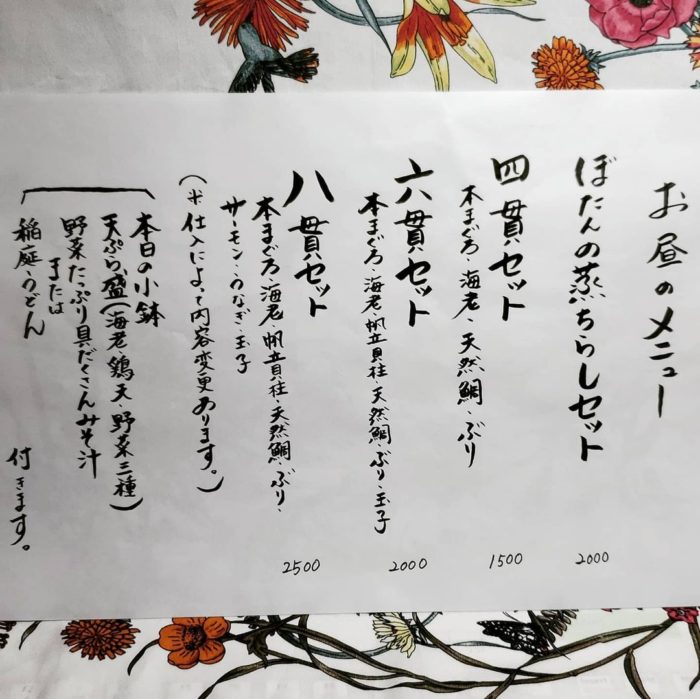 お昼のメニュー
ぼたんの蒸ちらしセット 2000
四貫セット 1500
本まぐろ・海老・天然鯛・ぶり
六貫セット 2000
本まぐろ・海老・帆立貝柱・天然鯛・ぶり・玉子
八貫セット 2500
本まぐろ・海老・帆立貝柱・天然鯛・ぶり・
サーモン・うなぎ・玉子
(※仕入によって内容変更あります。)
本日の小鉢
天ぷら盛(海老・鶏天・野菜三種)
野菜たっぷり具だくさんみそ汁
または
稲庭うどん
付きます。